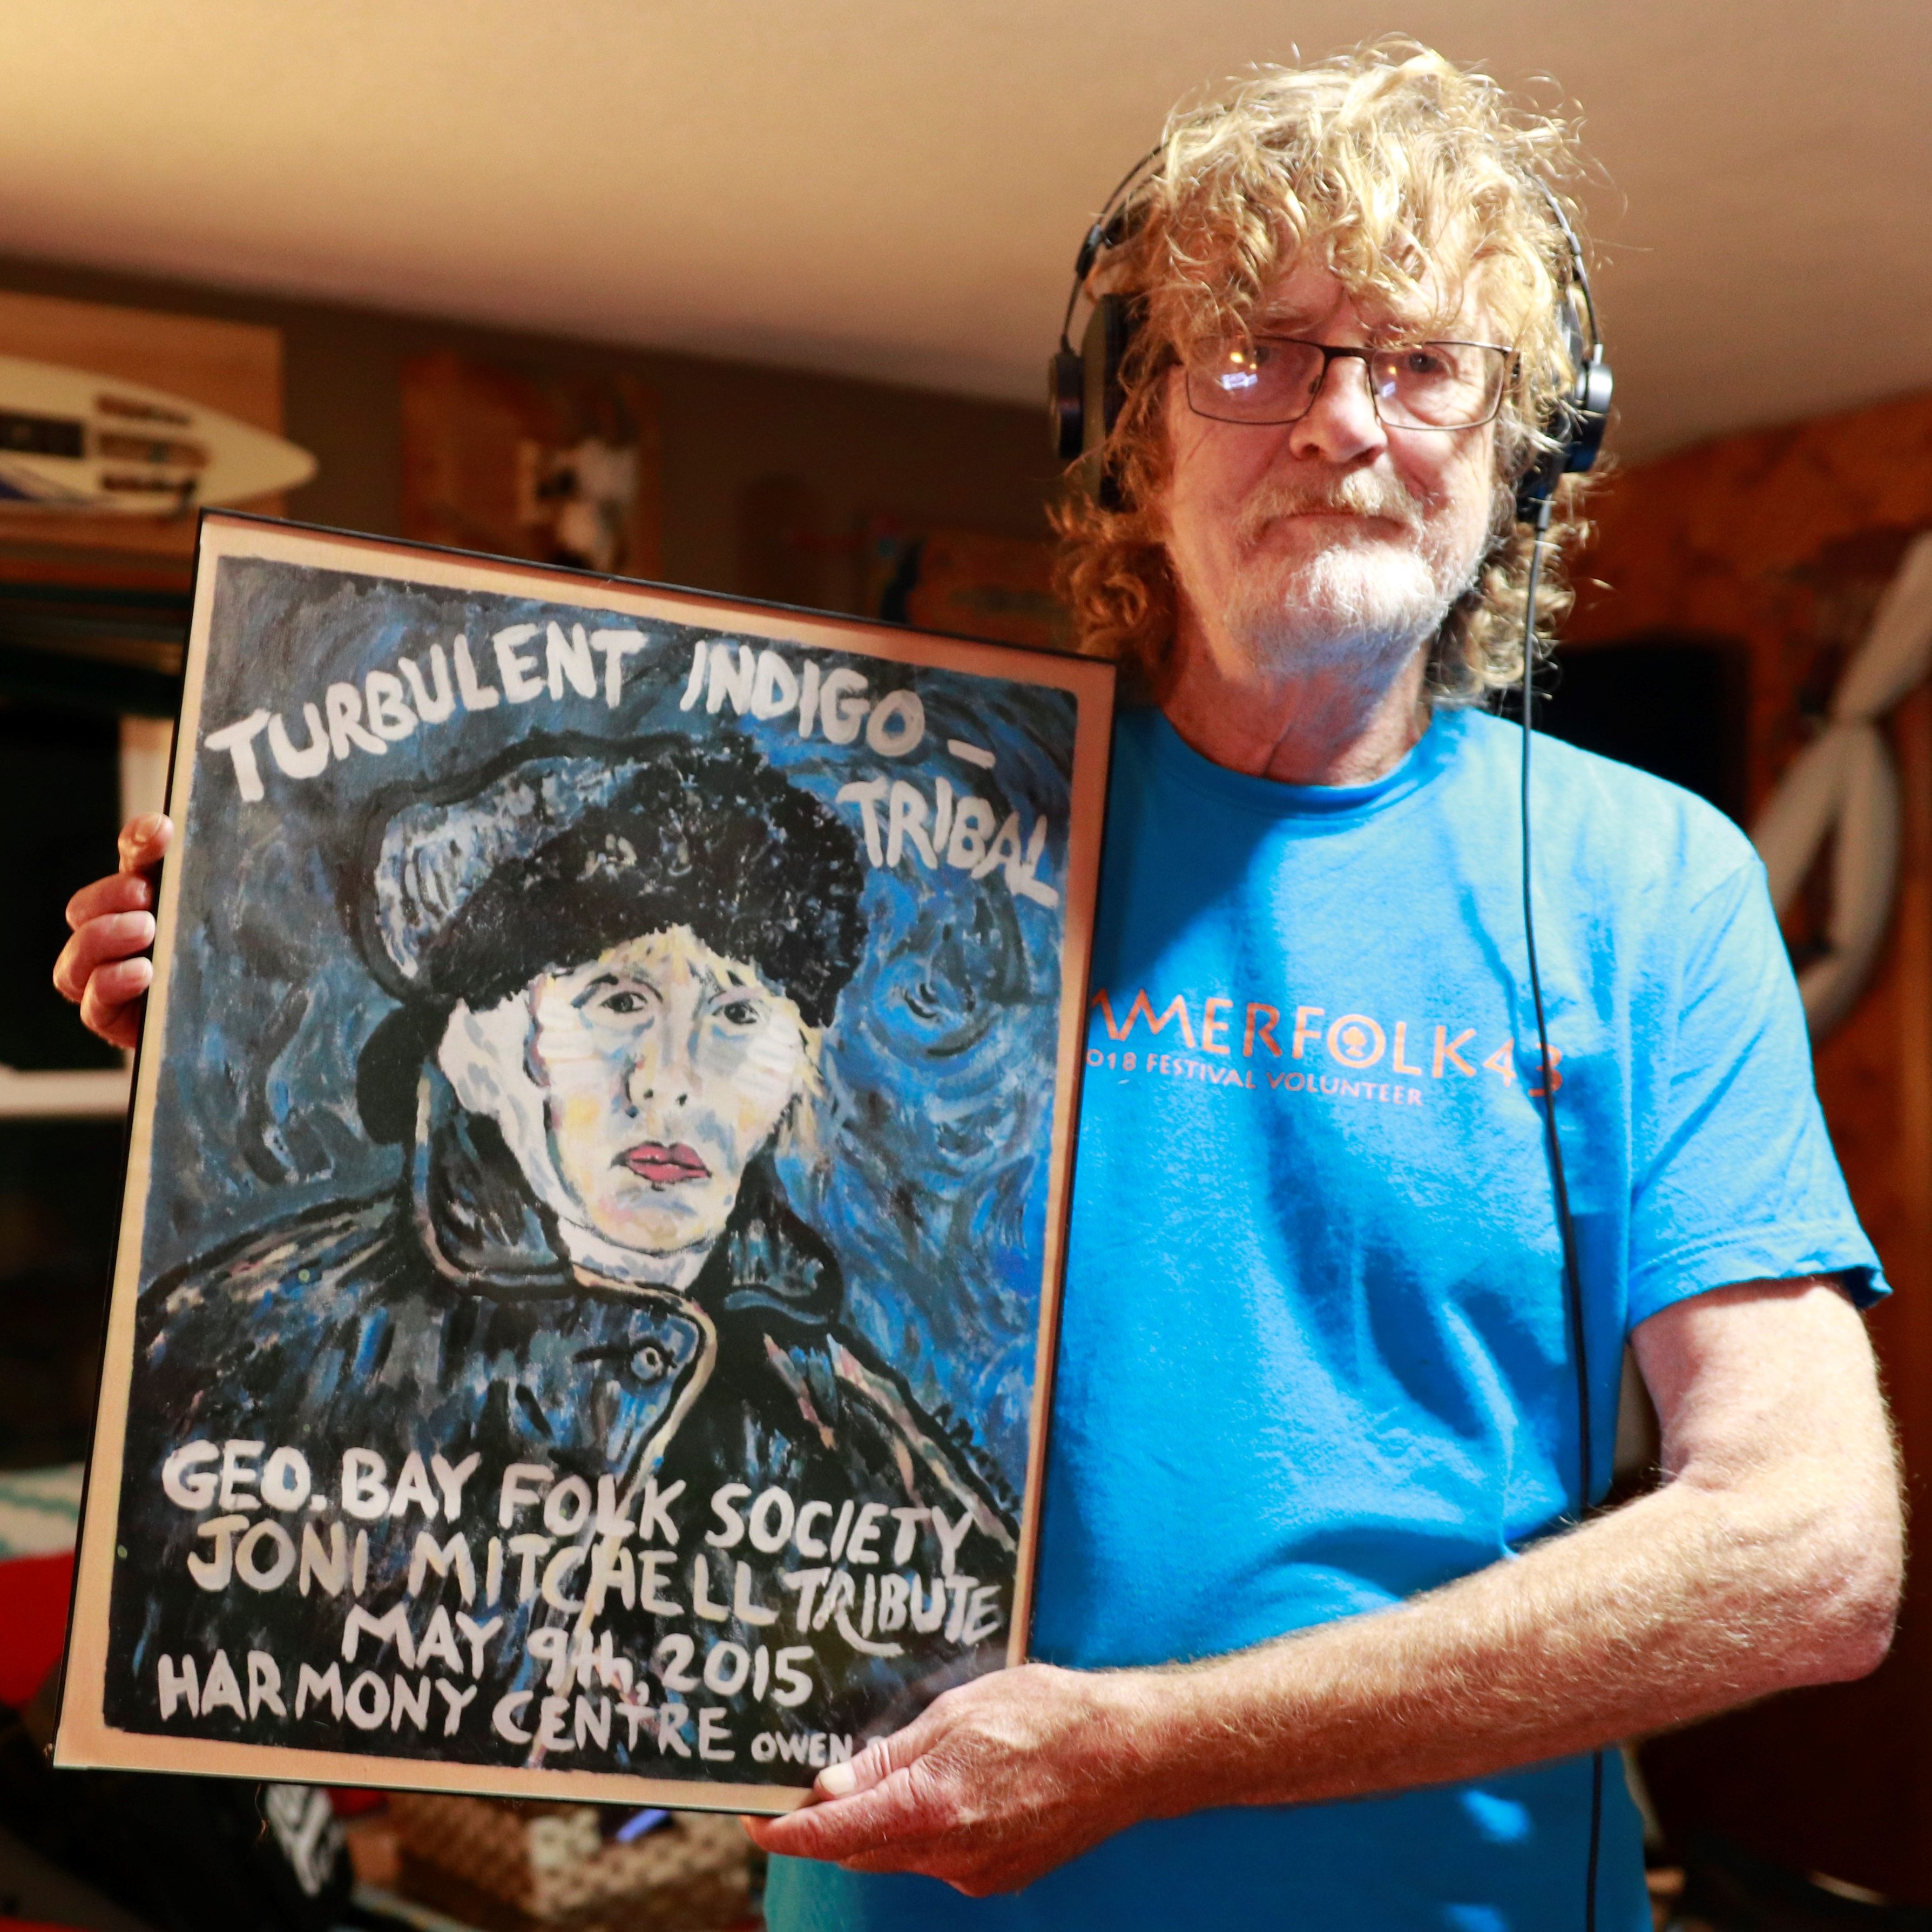 TURBULENT INDIGO –
TRIBAL
GEO. BAY FOLK SOCIETY
JONI MITCHELL TRIBUTE
MAY 9th, 2015
HARMONY CENTRE OWEN
MMERFOLK43
018 FESTIVAL VOLUNTEER